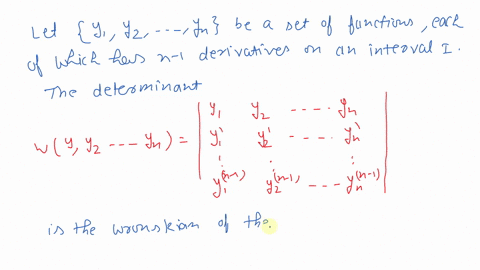 Let {y₁, y₂, ---, yₙ} be a set of functions, each
of which has n-1 derivatives on an interval I.
The determinant
W(y, y₂ --- yₙ) = | y₁ y₂ ----- yₙ |
| y₁' y₂' ----- yₙ' |
| ⋮ ⋮ ⋮ |
| y₁⁽ⁿ⁻¹⁾ y₂⁽ⁿ⁻¹⁾ ---- yₙ⁽ⁿ⁻¹⁾ |
is the wronskian of the